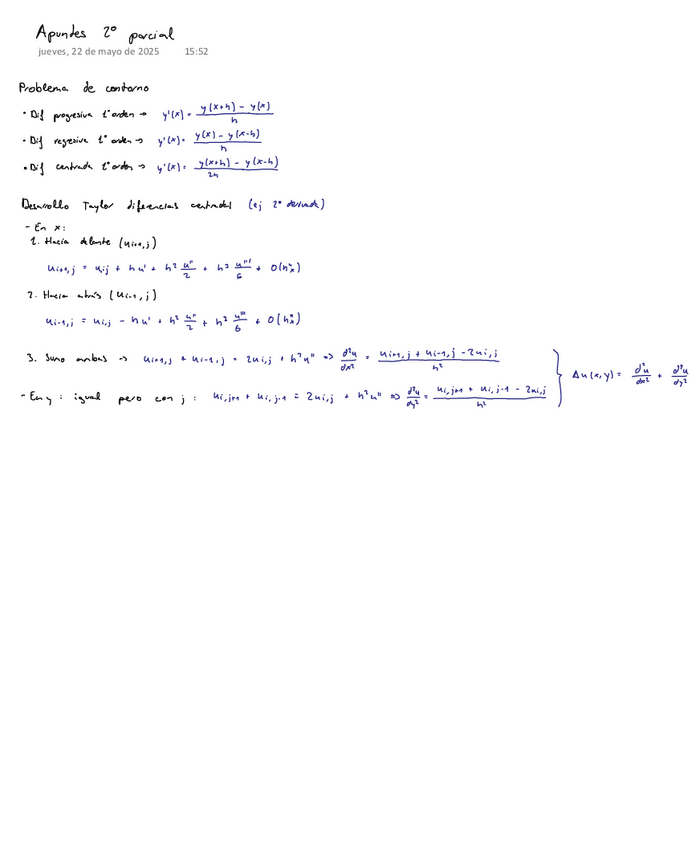 Apuntes 2º parcial
jueves, 22 de mayo de 2025 15:52
Problema de contorno
· Dif progresiva 1º orden → y'(x) = (y(x+h) - y(x))/h
· Dif regresiva 1º orden → y'(x) = (y(x) - y(x-h))/h
· Dif centrada 1º orden → y'(x) = (y(x+h) - y(x-h))/2h
Desarrollo Taylor diferencias centradas (ej 2ª derivada)
- En x:
1. Hacia delante (u_{i+1,j})
u_{i+1,j} = u_{i,j} + hu' + h² u''/2 + h³ u'''/6 + O(h⁴ₓ)
2. Hacia atrás (u_{i-1,j})
u_{i-1,j} = u_{i,j} - hu' + h² u''/2 + h³ u'''/6 + O(h⁴ₓ)
3. Sumo ambas => u_{i+1,j} + u_{i-1,j} = 2u_{i,j} + h²u'' => d²u/dx² = (u_{i+1,j} + u_{i-1,j} - 2u_{i,j})/h²
- En y: igual pero con j: u_{i,j+1} + u_{i,j-1} = 2u_{i,j} + h²u'' => d²u/dy² = (u_{i,j+1} + u_{i,j-1} - 2u_{i,j})/h²
} Δu(x,y) = d²u/dx² + d²u/dy²